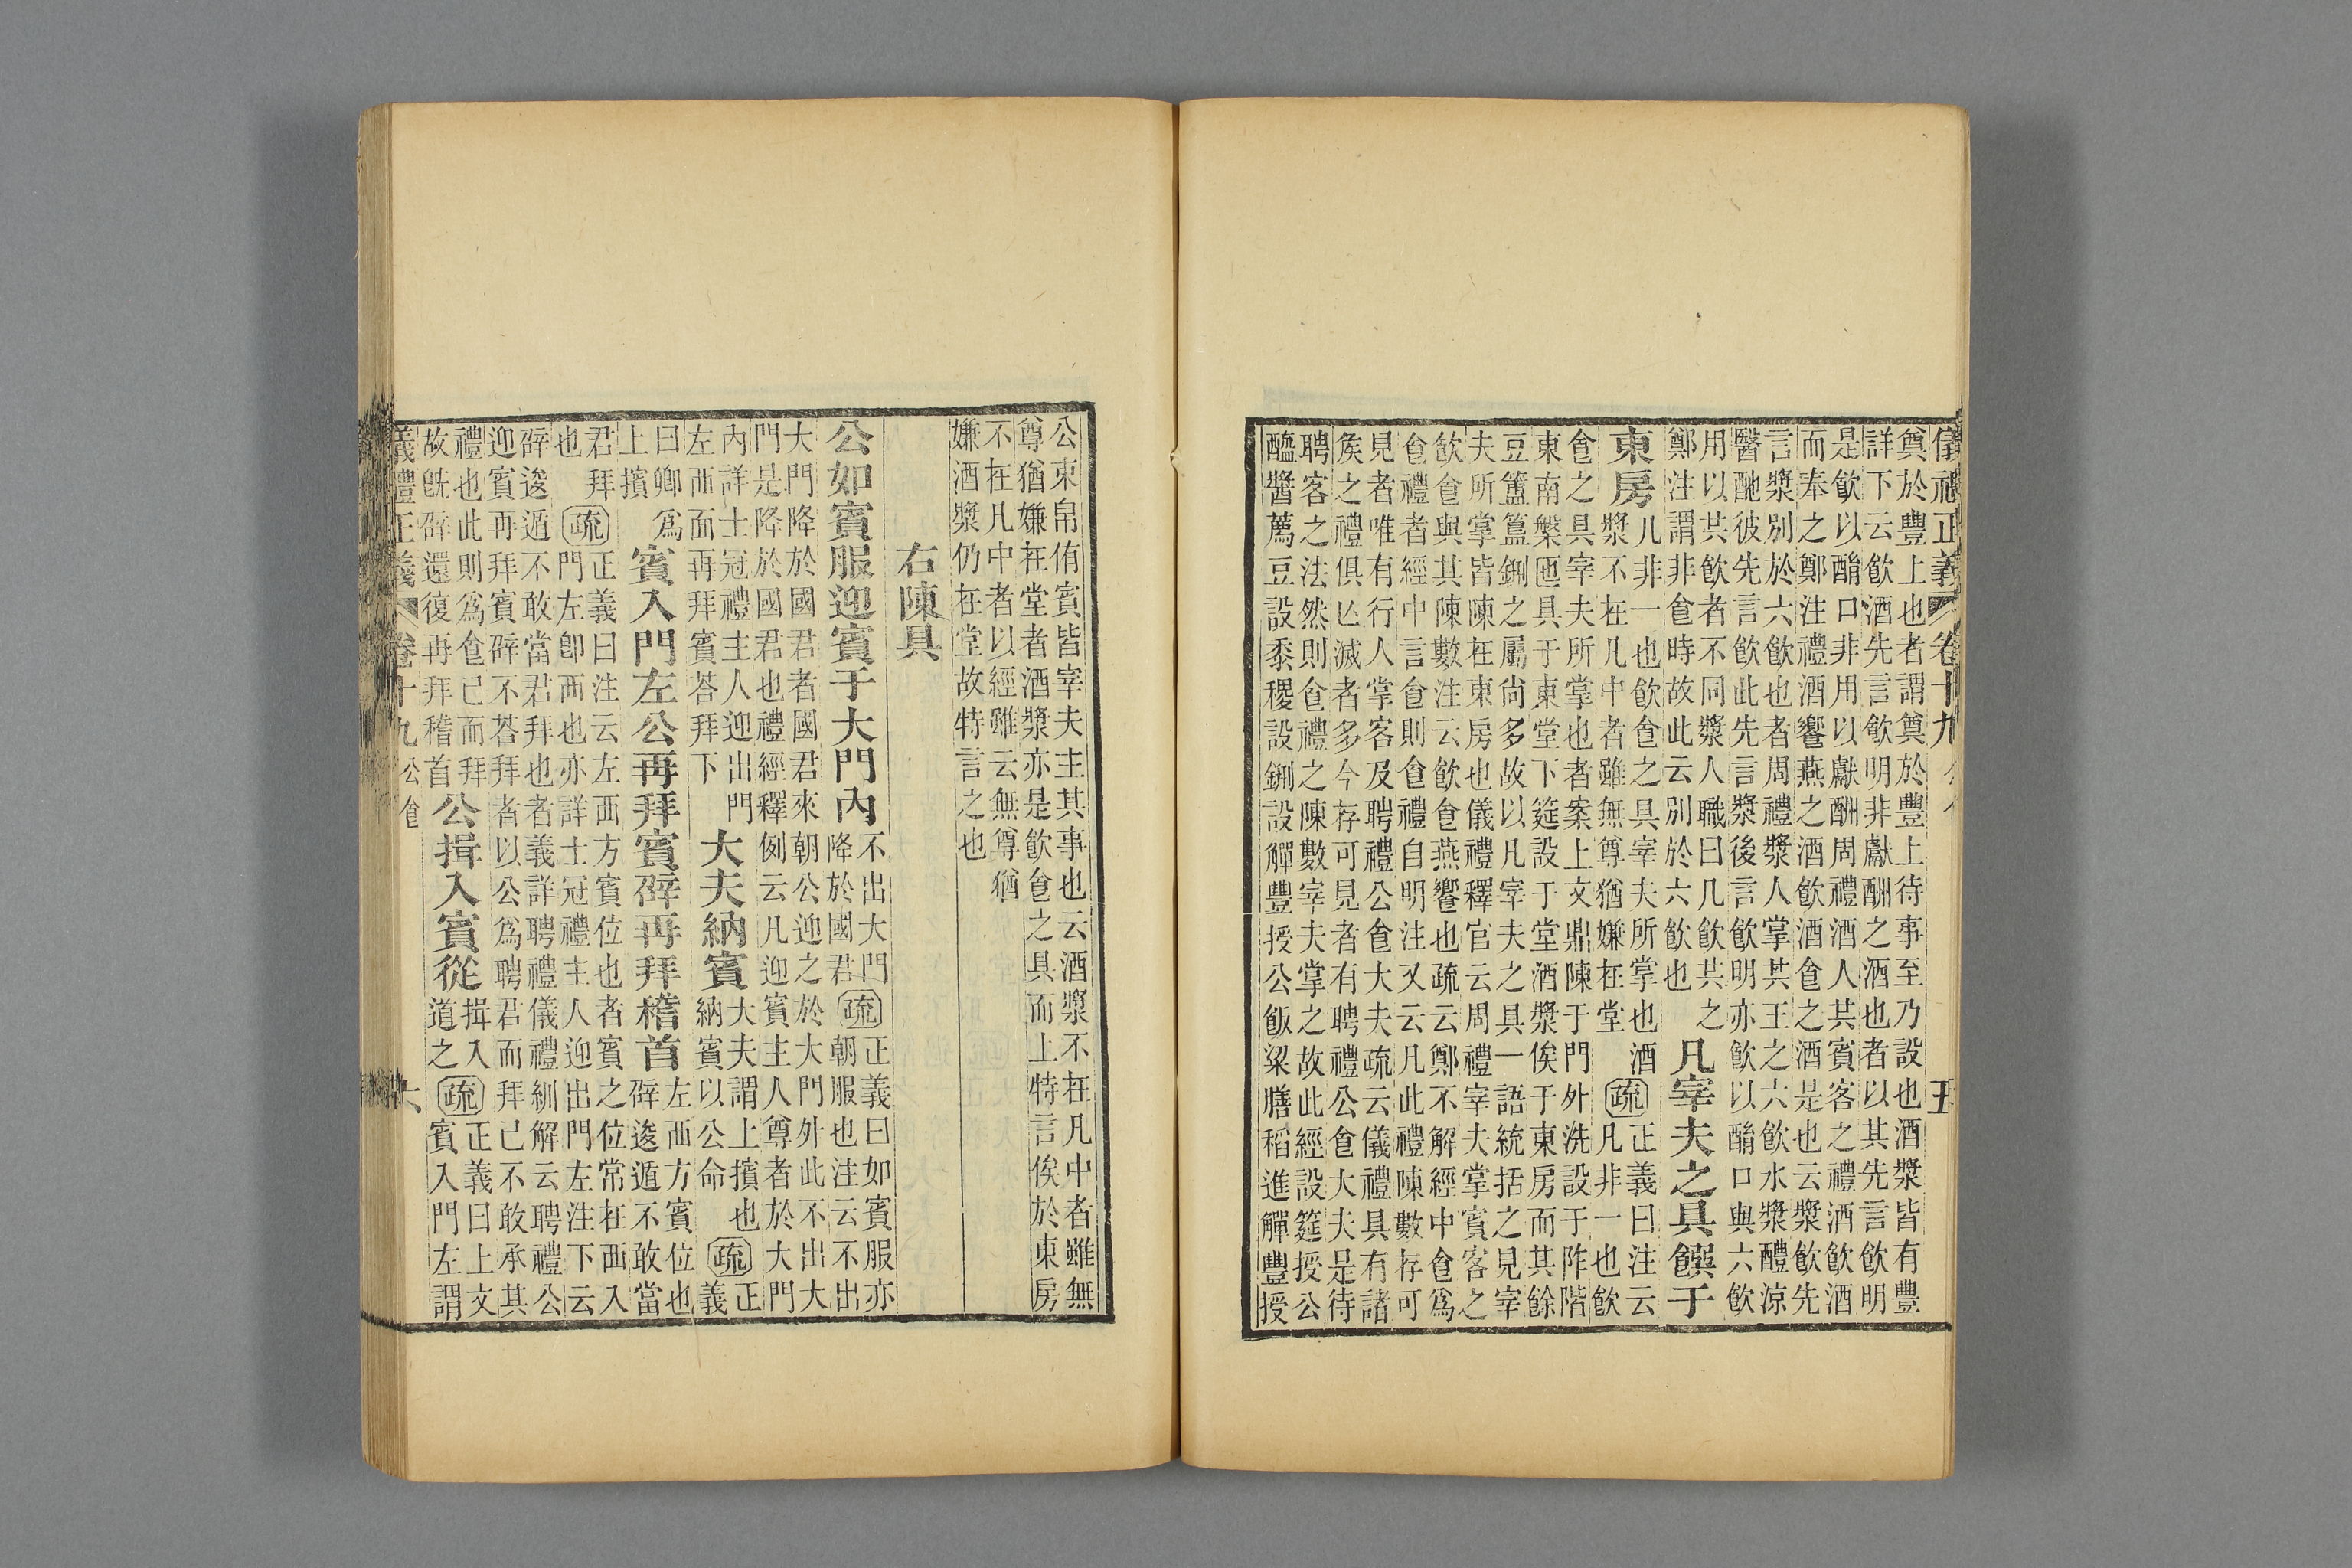 儀禮正義 卷十九 五
奠於豐上也者謂奠於豐上待事至乃設也酒漿皆有豐
詳下云飲酒先言飲明非獻酬之酒也者以其先言飲明
是飲以酳口非用以獻酬周禮酒人共賓客之禮酒飲酒
而奉之鄭注禮酒饗燕之酒飲酒食之酒是也云漿飲先
言漿別於六飲也者周禮漿人掌共王之六飲水漿醴涼
醫酏彼先言飲此先言漿後言飲明亦飲以酳口與六飲
用以共飲者不同漿人職曰凡飲共之
鄭注謂非食時故此云別於六飲也
凡宰夫之具饌于
東房
凡非一也飲食之具宰夫所掌也酒
漿不在凡中者雖無尊猶嫌在堂
疏
正義曰注云
凡非一也飲
食之具宰夫所掌也者案上文鼎陳于門外洗設于阼階
東南槃匜具于東堂下筵設于堂酒漿俟于東房而其餘
豆簠簋鉶之屬尙多故以凡宰夫之具一語統括之見宰
夫所掌皆陳在東房也儀禮釋官云周禮宰夫掌賓客之
飲食與其陳數注云飲食燕饗也疏云鄭不解經中食爲
食禮者經中言食則食禮自明注又云凡此禮陳數存可
見者唯有行人掌客及聘禮公食大夫疏云儀禮具有諸
矦之禮俱亾滅者多今存可見者有聘禮公食大夫是待
聘客之法然則食禮之陳數宰夫掌之故此經設筵授公
醯醬薦豆設黍稷設鉶設觶豐授公飯粱膳稻進觶豐授
公束帛侑賓皆宰夫主其事也云酒漿不在凡中者雖無
尊猶嫌在堂者酒漿亦是飲食之具而上特言俟於東房
不在凡中者以經雖云無尊猶
嫌酒漿仍在堂故特言之也
右陳具
公如賓服迎賓于大門內
不出大門
降於國君
疏
正義曰如賓服亦
朝服也注云不出
大門降於國君者國君來朝公迎之於大門外此不出大
門是降於國君也禮經釋例云凡迎賓主人尊者於大門
內詳士冠禮主人迎出門
左西面再拜賓荅拜下
大夫納賓
大夫謂上擯也
納賓以公命
疏
正
義
曰卿爲
上擯
賓入門左公再拜賓辟再拜稽首
左西方賓位也
辟逡遁不敢當
君拜
也
疏
正義曰注云左西方賓位也者賓之位常在西入
門左卽西也亦詳士冠禮主人迎出門左注下云
辟逡遁不敢當君拜也者義詳聘禮儀禮紃解云聘禮公
迎賓再拜賓辟不荅拜者以公爲聘君而拜己不敢承其
禮也此則爲食已而拜
故旣辟還復再拜稽首
公揖入賓從
揖入
道之
疏
正義曰上文
賓入門左謂
儀禮正義 卷十九 公食 六